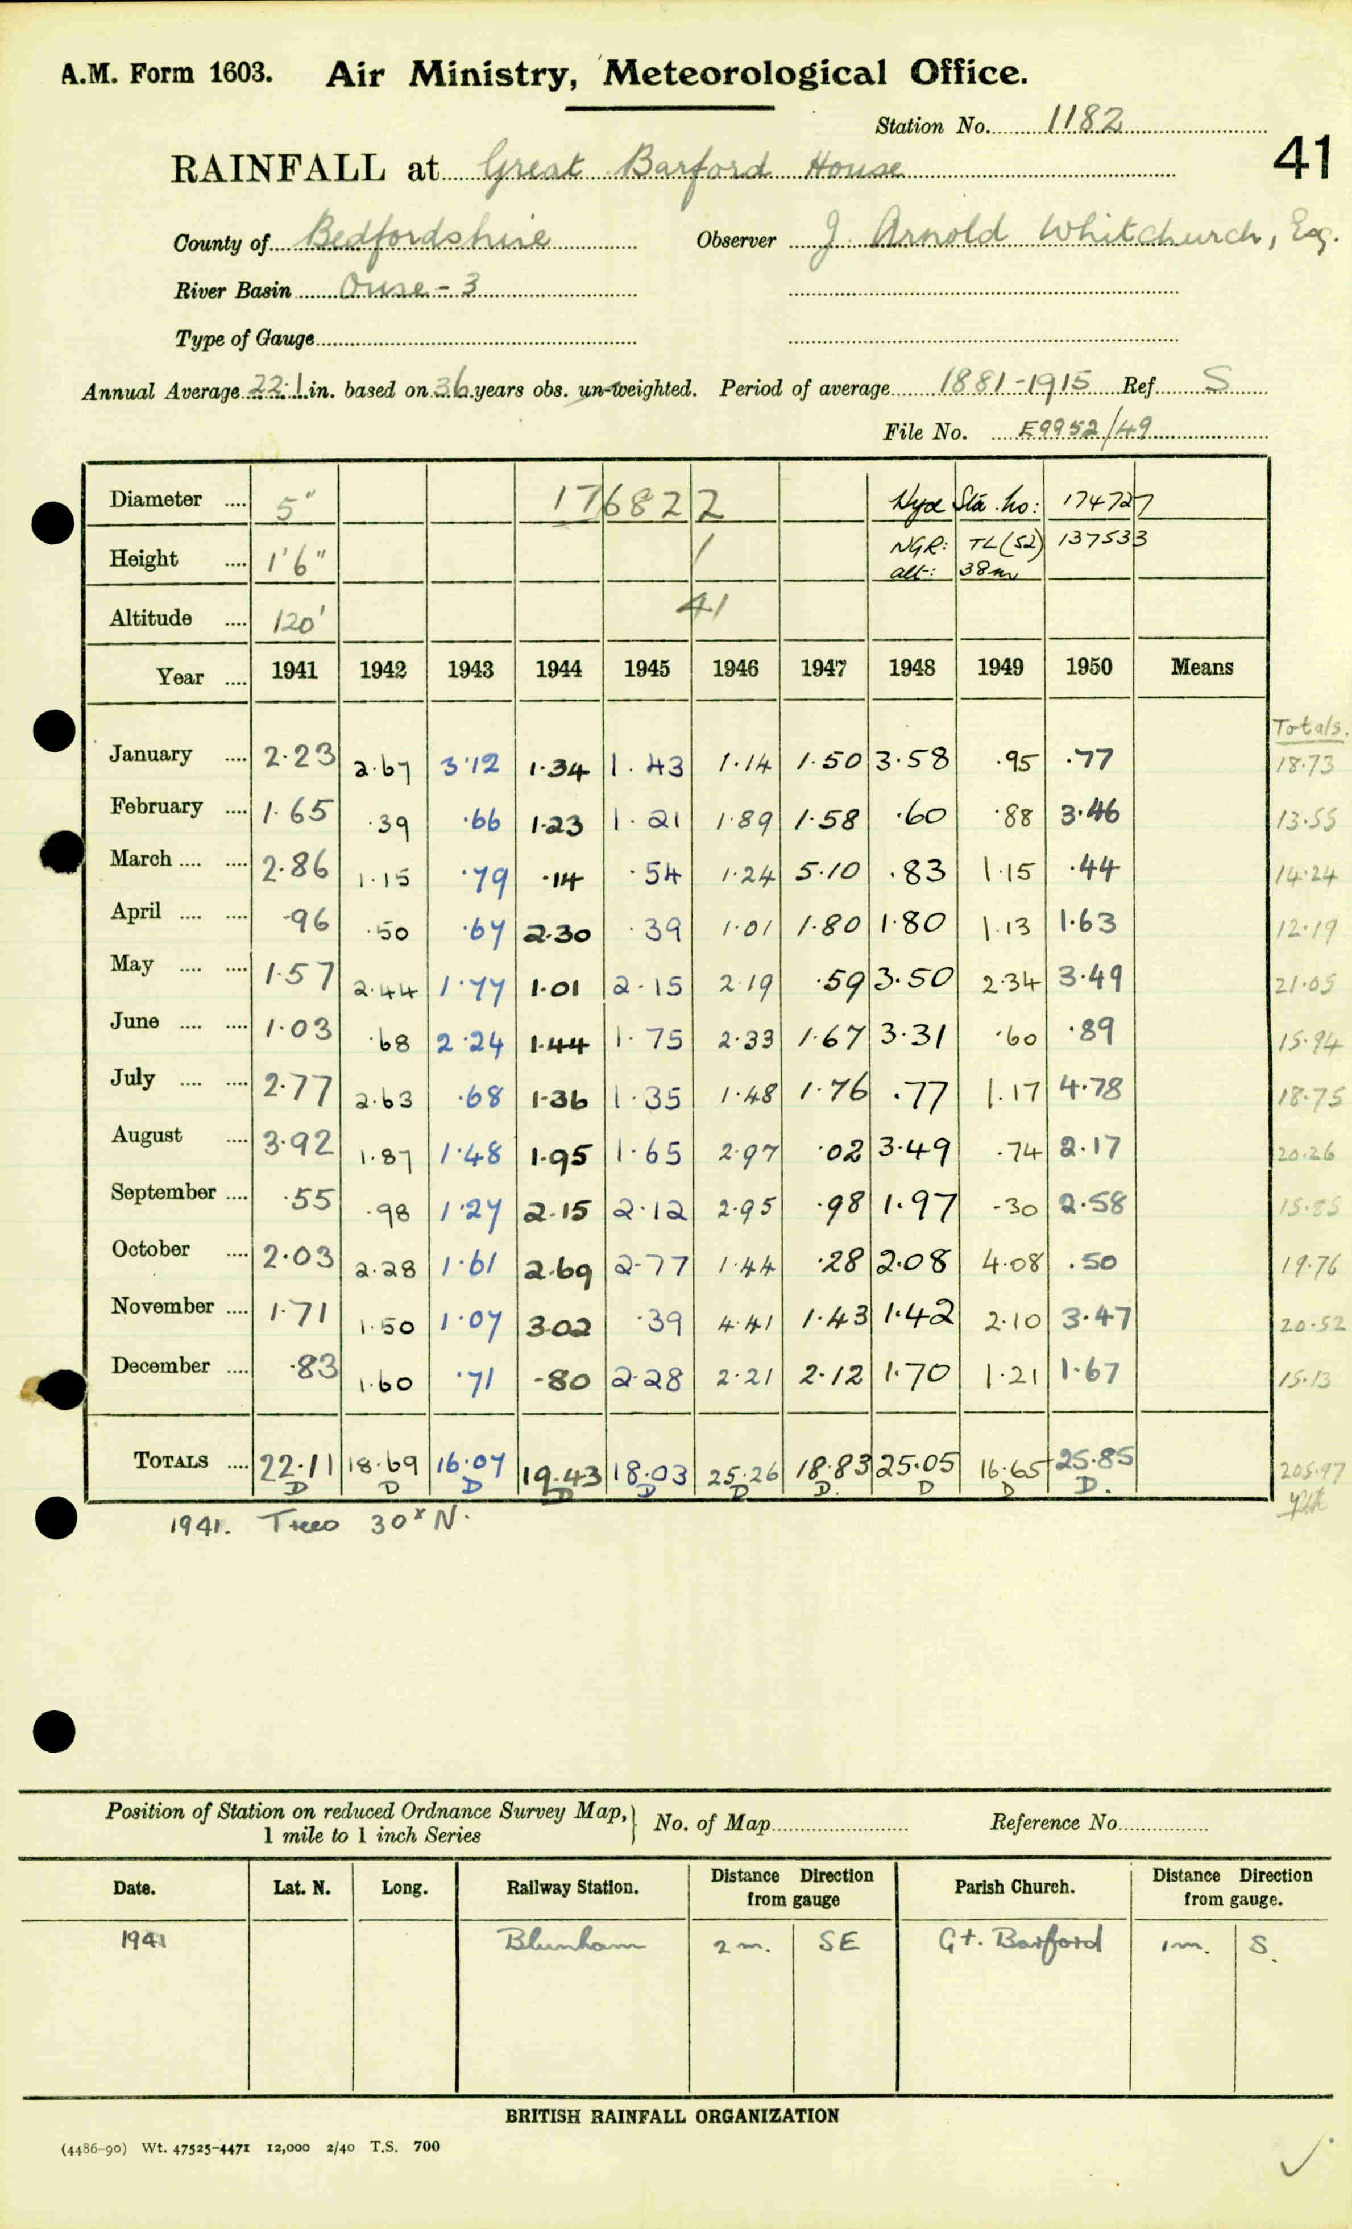 A.M. Form 1603. Air Ministry, Meteorological Office.
Station No. 1182
41
RAINFALL at Great Barford House
County of Bedfordshire Observer J. Arnold Whitchurch, Esq.
River Basin Ouse - 3
Type of Gauge
Annual Average 22.1 in. based on 36 years obs. un-weighted. Period of average 1881-1915 Ref S
File No. E9952/49
Diameter .... 5" 176822 Sta. no: 174727
Height .... 1'6" / NGR: TL(52) 137533
alt: 38m
Altitude .... 120' 41
Year .... 1941 1942 1943 1944 1945 1946 1947 1948 1949 1950 Means
Totals.
January .... 2.23 2.67 3.12 1.34 1.43 1.14 1.50 3.58 .95 .77 18.73
February .... 1.65 .39 .66 1.23 1.21 1.89 1.58 .60 .88 3.46 13.55
March .... .... 2.86 1.15 .79 .14 .54 1.24 5.10 .83 1.15 .44 14.24
April .... .... .96 .50 .67 2.30 .39 1.01 1.80 1.80 1.13 1.63 12.19
May .... .... 1.57 2.44 1.77 1.01 2.15 2.19 .59 3.50 2.34 3.49 21.05
June .... .... 1.03 .68 2.24 1.44 1.75 2.33 1.67 3.31 .60 .89 15.94
July .... .... 2.77 2.63 .68 1.36 1.35 1.48 1.76 .77 1.17 4.78 18.75
August .... 3.92 1.87 1.48 1.95 1.65 2.97 .02 3.49 .74 2.17 20.26
September .... .55 .98 1.27 2.15 2.12 2.95 .98 1.97 .30 2.58 15.85
October .... 2.03 2.28 1.61 2.69 2.77 1.44 .28 2.08 4.08 .50 19.76
November .... 1.71 1.50 1.07 3.02 .39 4.41 1.43 1.42 2.10 3.47 20.52
December .... .83 1.60 .71 .80 2.28 2.21 2.12 1.70 1.21 1.67 15.13
TOTALS .... 22.11 18.69 16.07 19.43 18.03 25.26 18.83 25.05 16.65 25.85 205.97
D D D D D D D. D D D.
1941. Trees 30x N.
Position of Station on reduced Ordnance Survey Map, } No. of Map Reference No.
1 mile to 1 inch Series
Date. Lat. N. Long. Railway Station. Distance Direction from gauge Parish Church. Distance Direction from gauge.
1941 Blunham 2 m. SE Gt. Barford 1 m. S.
BRITISH RAINFALL ORGANIZATION
(4486-90) Wt. 47525-4471 12,000 2/40 T.S. 700